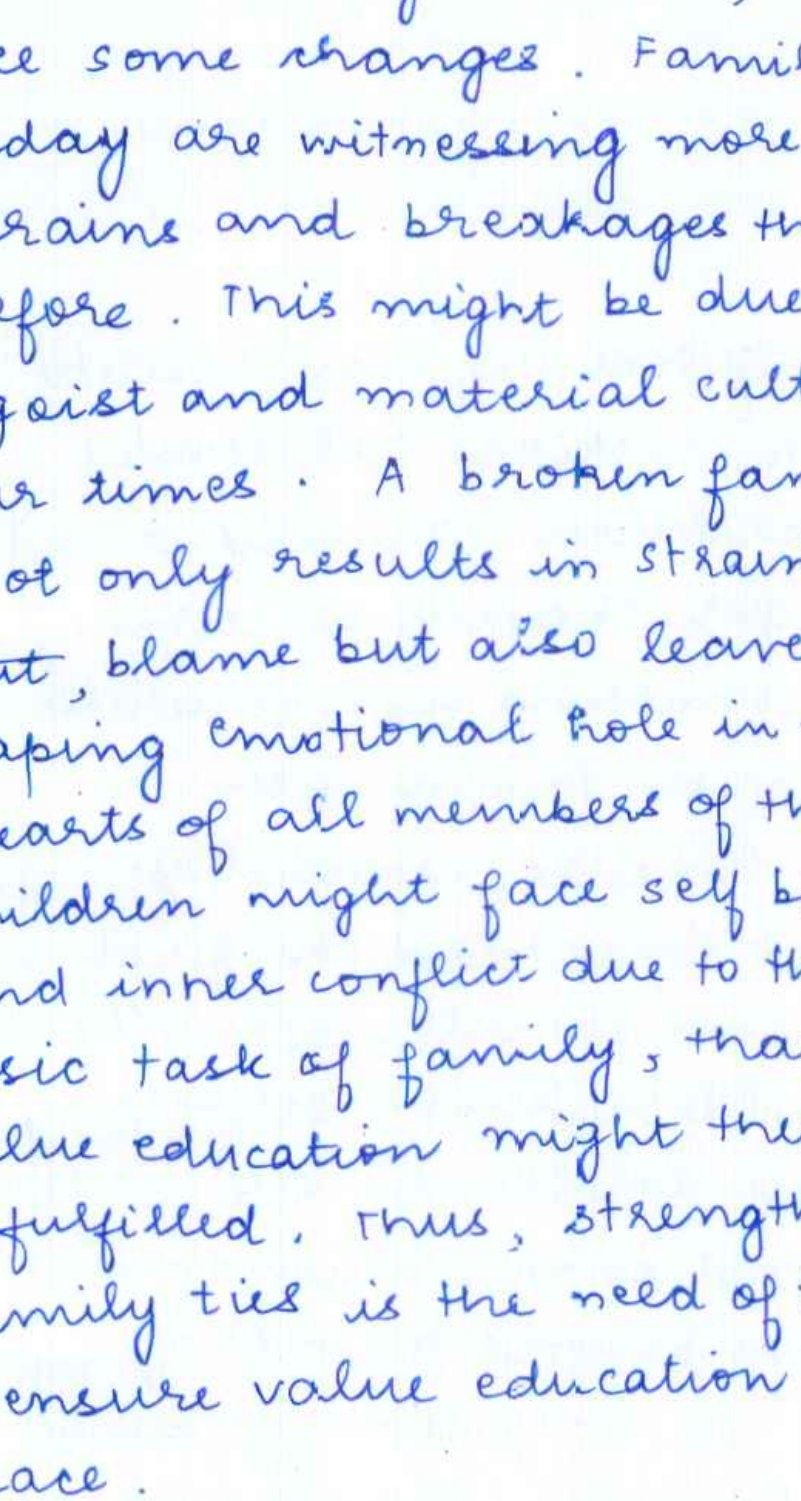 ce some changes. Famil
day are witnessing more
rains and breakages th
efore. This might be due
goist and material cult
ur times. A broken fam
ot only results in strain
ut, blame but also leave
aping emotional hole in
earts of all members of th
ildren might face self b
nd inner conflict due to th
sic task of family, tha
lue education might the
fulfilled. Thus, strength
mily ties is the need of
ensure value education
ace.